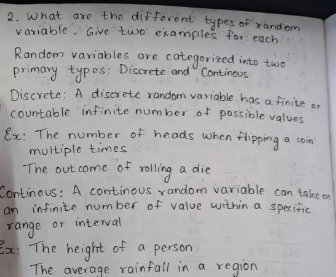 2. What are the different types of random
variable. Give two examples for each
Random variables are categorized into two
primary types: Discrete and Continous
Discrete: A discrete random variable has a finite or
countable infinite number of possible values
Ex: The number of heads when flipping a coin
multiple times
The outcome of rolling a die
Continous: A continous random variable can take on
an infinite number of value within a specific
range or interval
Ex: The height of a person
The average rainfall in a region